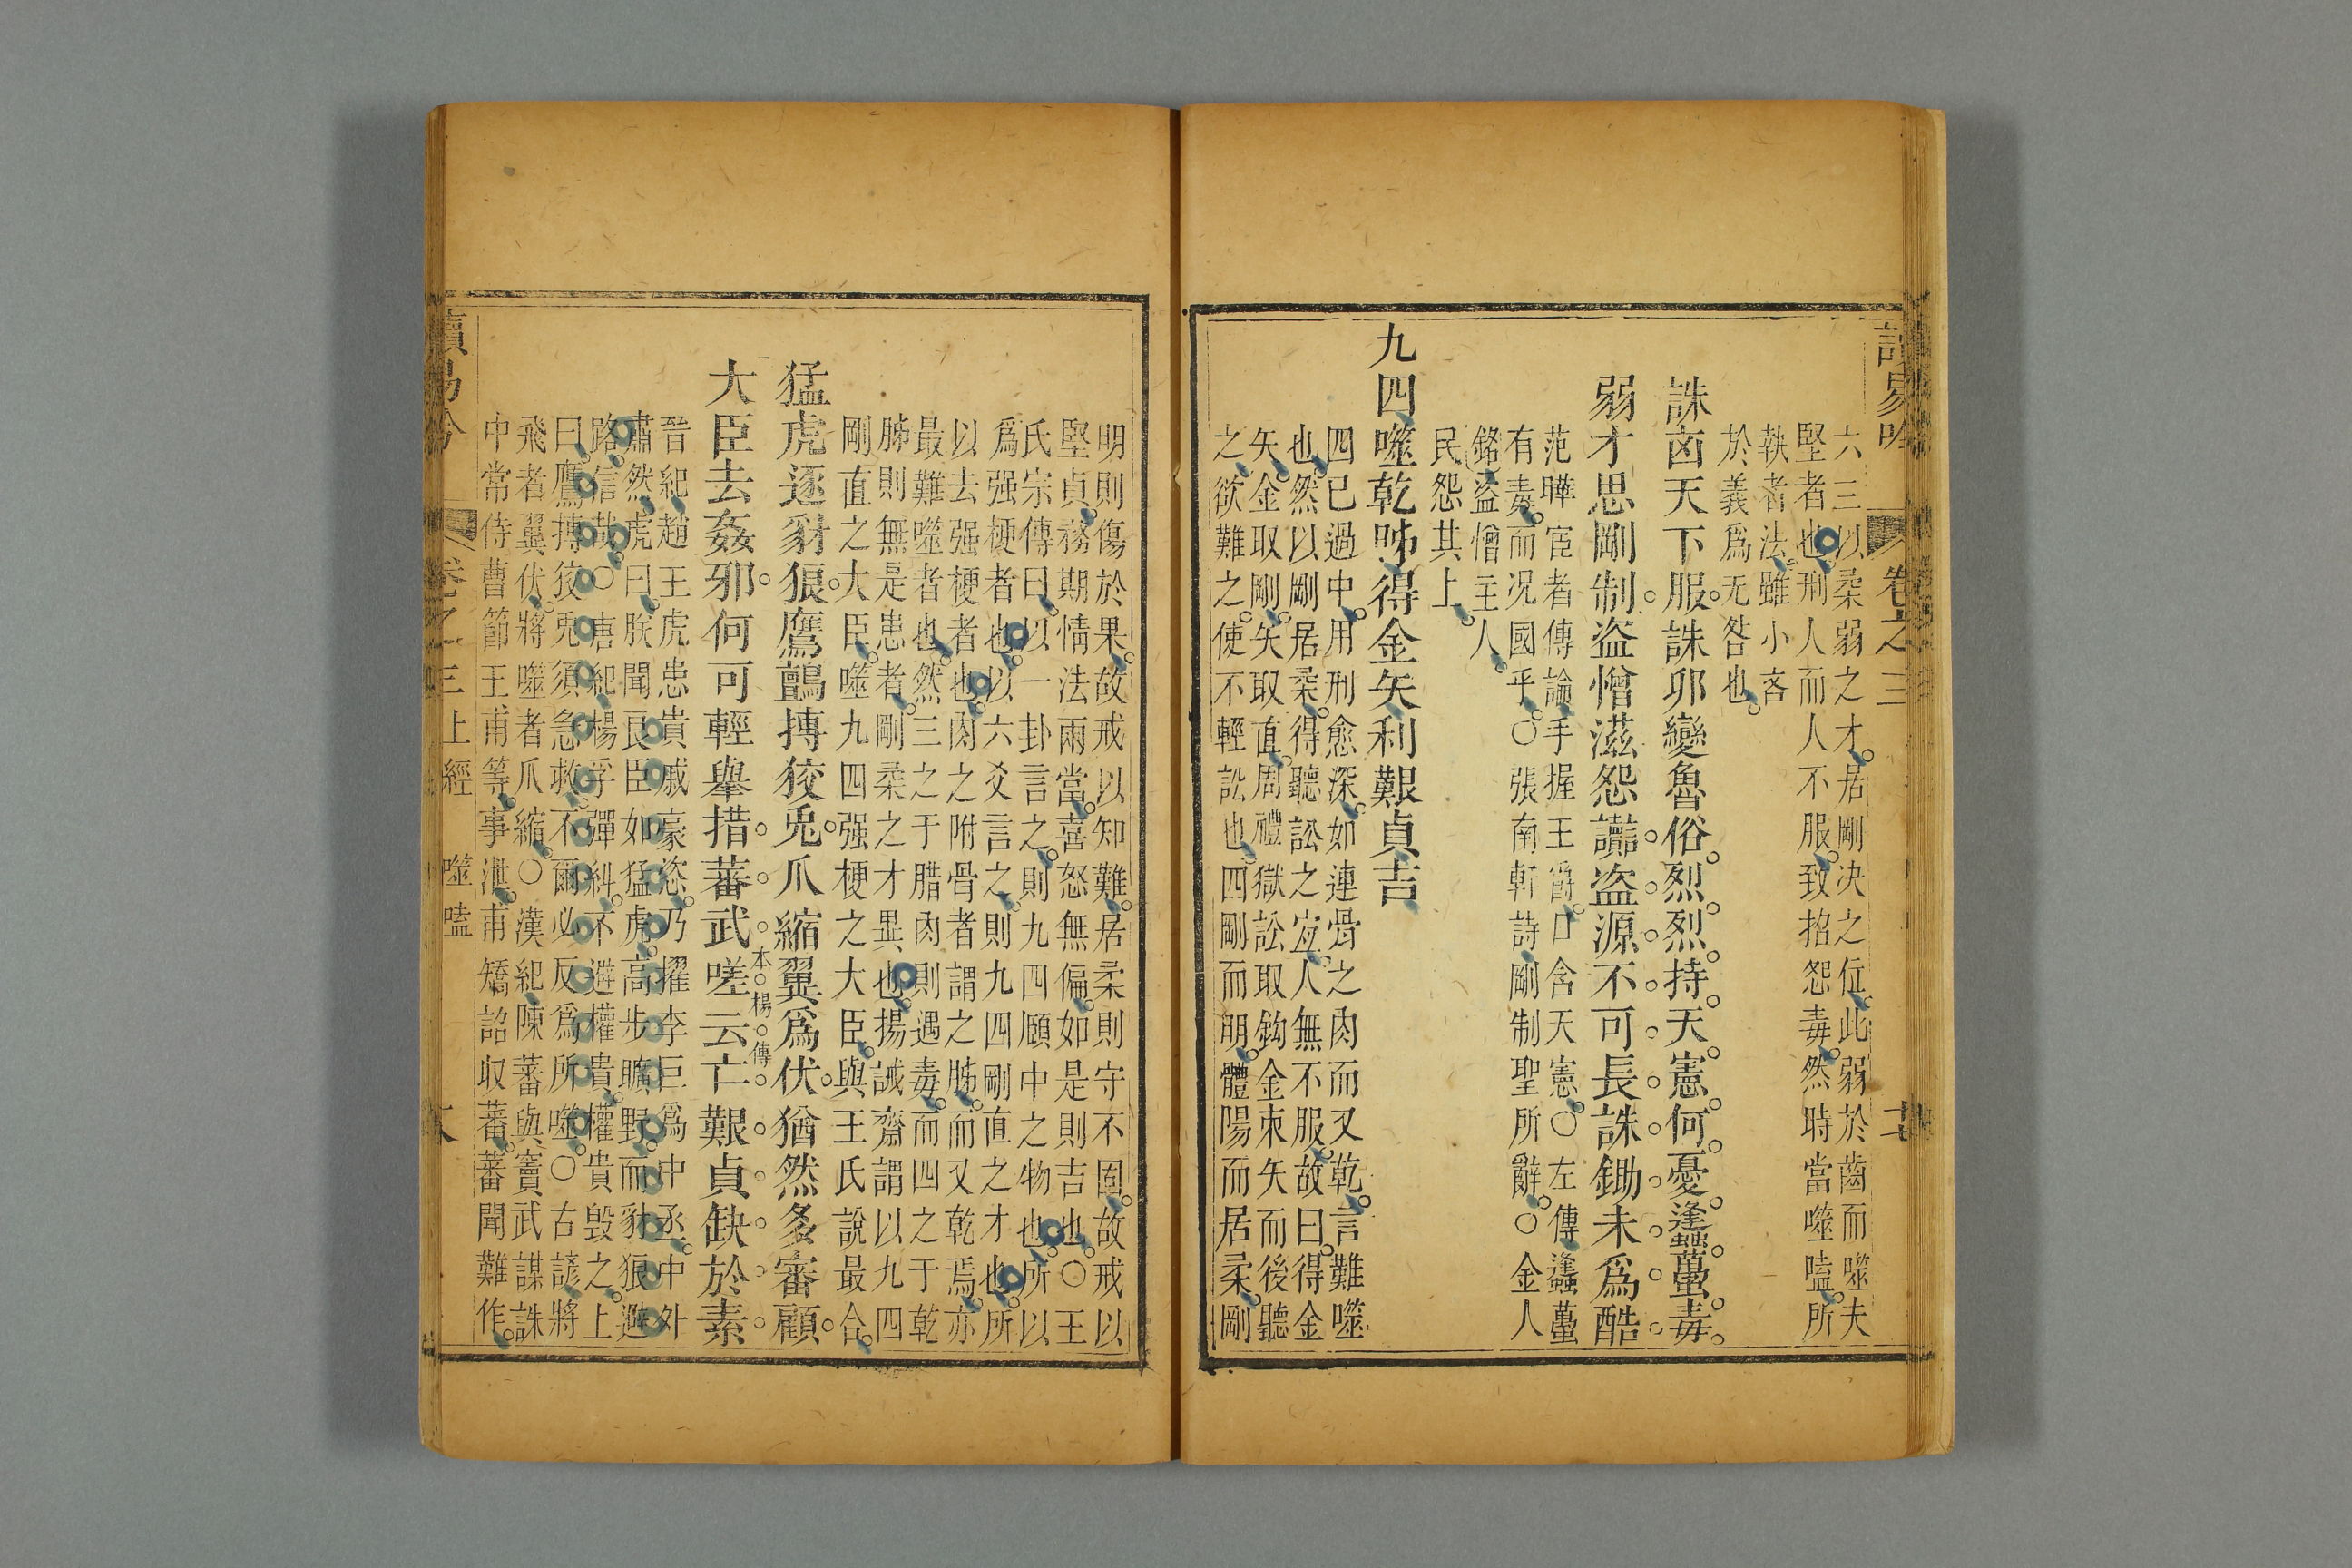 讀易吟 卷之三
六三以柔弱之才居剛決之位此弱於齒而噬夫
堅者也刑人而人不服致招怨毒然時當噬嗑所
執者法雖小吝
於義爲无咎也
誅凶天下服誅卯變魯俗烈烈持天憲何憂蠭蠆毒
弱才思剛制盜憎滋怨讟盜源不可長誅鋤未爲酷
范曄宦者傳論手握王爵口含天憲○左傳蠭蠆
有毒而况國乎○張南軒詩剛制聖所辭○金人
銘盜憎主人
民怨其上
九四噬乾胏得金矢利艱貞吉
四已過中用刑愈深如連骨之肉而又乾言難噬
也然以剛居柔得聽訟之宜人無不服故曰得金
矢金取剛矢取直周禮獄訟取鈎金束矢而後聽
之欲難之使不輕訟也四剛而明體陽而居柔剛
明則傷於果故戒以知難居柔則守不固故戒以
堅貞務期情法兩當喜怒無偏如是則吉也○王
氏宗傳曰以一卦言之則九四頤中之物也所以
爲强梗者也以六爻言之則九四剛直之才也所
以去强梗者也肉之附骨者謂之胏而又乾焉亦
最難噬者也然三之于腊肉則遇毒而四之于乾
胏則無是患者剛柔之才異也揚誠齋謂以九四
剛直之大臣噬九四强梗之大臣與王氏說最合
猛虎逐豺狼鷹鸇搏狡兎爪縮翼爲伏猶然多審顧
大臣去姦邪何可輕舉措蕃武嗟云亡艱貞缺於素
本楊傳
晉紀趙王虎患貴戚豪恣乃擢李巨爲中丞中外
肅然虎曰朕聞良臣如猛虎高步曠野而豺狼避
路信哉○唐紀楊孚彈糾不避權貴權貴毀之上
曰鷹搏狡兎須急救不爾必反爲所噬○古諺將
飛者翼伏將噬者爪縮○漢紀陳蕃與竇武謀誅
中常侍曹節王甫等事泄甫矯詔収蕃蕃聞難作
讀易吟 卷之三 上經 噬嗑